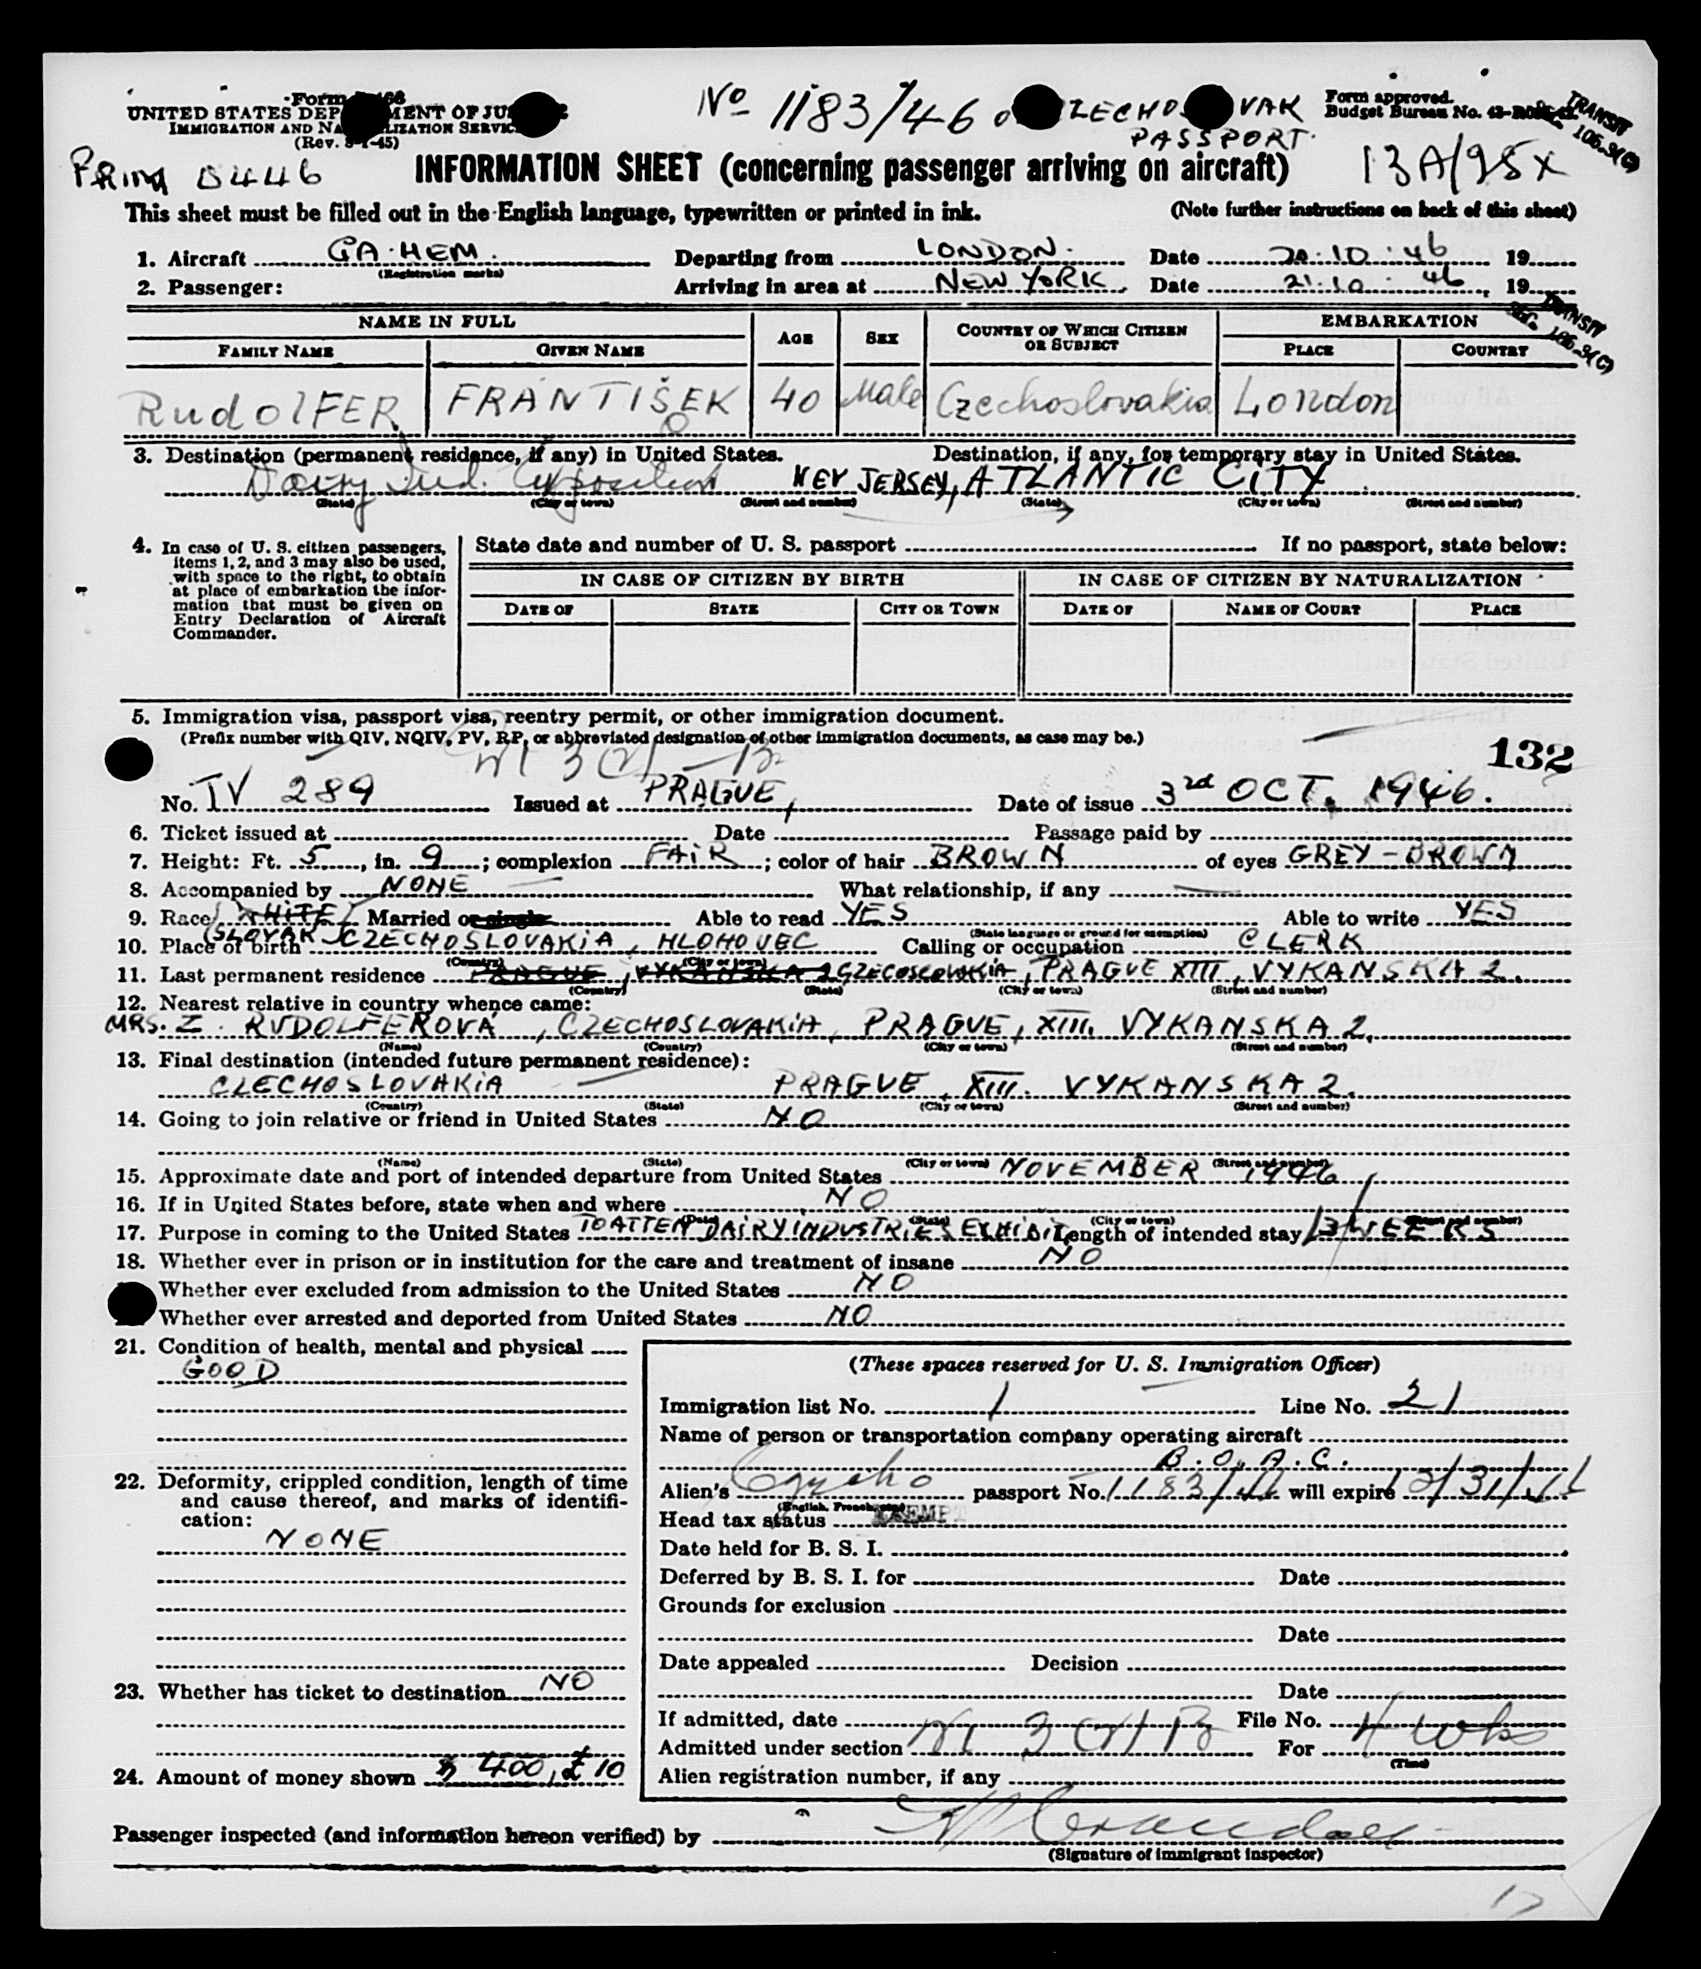 Form
UNITED STATES DEP MENT OF JUS
IMMIGRATION AND NA LIZATION SERVIC
(Rev. 3-1-45)
Nº 1183/46 CZECHO VAK
PASSPORT.
Form approved.
Budget Bureau No.
TRANSIT
106.3(C)
5446
INFORMATION SHEET (concerning passenger arriving on aircraft)
13A/95X
This sheet must be filled out in the English language, typewritten or printed in ink. (Note further instructions on back of this sheet)
1. Aircraft GA.HEM. Departing from LONDON. Date 20.10.46 19
(Registration marks)
2. Passenger: Arriving in area at NEW YORK. Date 21.10.46 19
TRANSIT
SEC. 106.3(C)
NAME IN FULL AGE SEX COUNTRY OF WHICH CITIZEN OR SUBJECT EMBARKATION
FAMILY NAME GIVEN NAME PLACE COUNTRY
RudOlFER FRANTIŠEK 40 Male Czechoslovakia London
3. Destination (permanent residence, if any) in United States. Destination, if any, for temporary stay in United States.
Dairy Ind. Exposition NEV JERSEY, ATLANTIC CITY
(State) (City or town) (Street and number) (State) (City or town) (Street and number)
4. In case of U. S. citizen passengers, items 1, 2, and 3 may also be used, with space to the right, to obtain at place of embarkation the information that must be given on Entry Declaration of Aircraft Commander.
State date and number of U. S. passport If no passport, state below:
IN CASE OF CITIZEN BY BIRTH IN CASE OF CITIZEN BY NATURALIZATION
DATE OF STATE CITY OR TOWN DATE OF NAME OF COURT PLACE
5. Immigration visa, passport visa, reentry permit, or other immigration document.
(Prefix number with QIV, NQIV, PV, RP, or abbreviated designation of other immigration documents, as case may be.)
132
No. TV 289 Issued at PRAGUE, Date of issue 3rd OCT. 1946.
6. Ticket issued at Date Passage paid by
7. Height: Ft. 5, in. 9; complexion FAIR; color of hair BROWN of eyes GREY-BROWN
8. Accompanied by NONE What relationship, if any
9. Race WHITE Married or single Able to read YES Able to write YES
(State language or ground for exemption)
SLOVAK
10. Place of birth CZECHOSLOVAKIA, HLOHOVEC Calling or occupation CLERK
(Country) (City or town)
11. Last permanent residence PRAGUE, VYKANSKA 2 CZECOSLOVAKIA, PRAGUE XIII, VYKANSKA 2.
(Country) (State) (City or town) (Street and number)
12. Nearest relative in country whence came:
MRS. Z. RUDOLFEROVÁ, CZECHOSLOVAKIA, PRAGUE, XIII. VYKANSKA 2.
(Name) (Country) (City or town) (Street and number)
13. Final destination (intended future permanent residence):
CZECHOSLOVAKIA PRAGUE, XIII. VYKANSKA 2.
(Country) (State) (City or town) (Street and number)
14. Going to join relative or friend in United States NO
(Name) (State) (City or town) (Street and number)
15. Approximate date and port of intended departure from United States NOVEMBER 1946
16. If in United States before, state when and where NO
(Date) (State) (City or town) (Street and number)
17. Purpose in coming to the United States TO ATTEN DAIRY INDUSTRIES EXHIBI Length of intended stay 3 WEEKS
18. Whether ever in prison or in institution for the care and treatment of insane NO
Whether ever excluded from admission to the United States NO
Whether ever arrested and deported from United States NO
21. Condition of health, mental and physical
GOOD
22. Deformity, crippled condition, length of time and cause thereof, and marks of identification:
NONE
23. Whether has ticket to destination NO
24. Amount of money shown $ 400, £ 10
(These spaces reserved for U. S. Immigration Officer)
Immigration list No. 1 Line No. 21
Name of person or transportation company operating aircraft
B.O.A.C.
Alien's passport No. 1183/46 will expire 12/31/46
(English, French, etc.)
Head tax status EXEMPT
Date held for B. S. I.
Deferred by B. S. I. for Date
Grounds for exclusion
Date
Date appealed Decision
Date
If admitted, date File No.
Admitted under section For 4 wks
(Time)
Alien registration number, if any
Passenger inspected (and information hereon verified) by
(Signature of immigrant inspector)